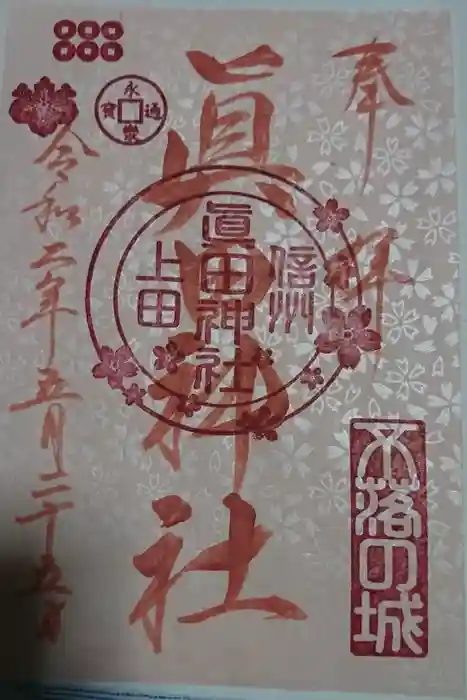 奉拝
眞田神社
信州
眞田神社
上田
不落の城
永楽通寳
令和二年五月二十五日